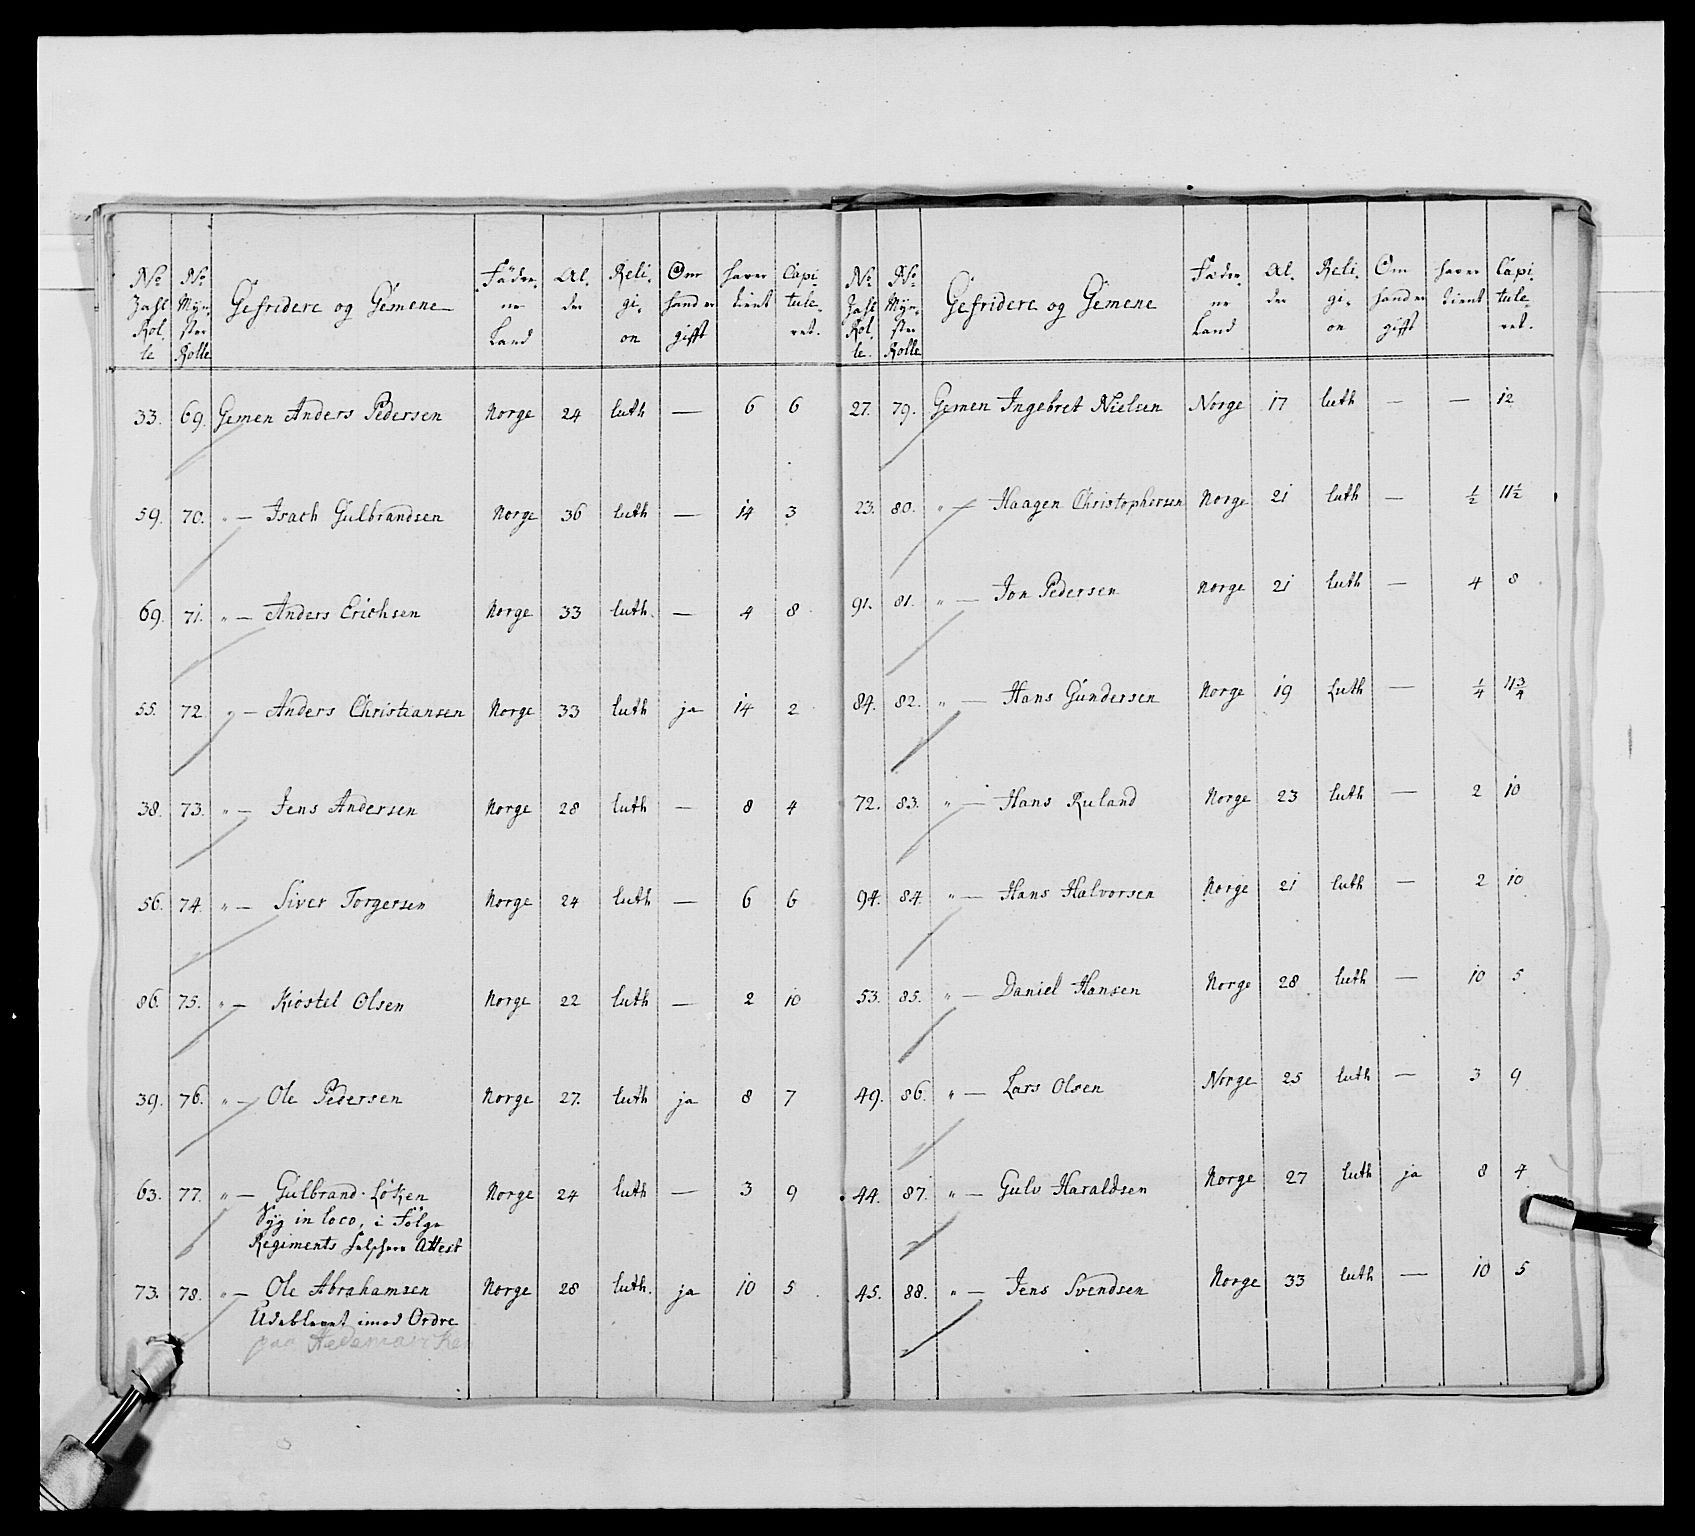 No Zahl Rolle | No Mynster Rolle | Gefridere og Gemene | Fäderne Land | Alder | Religion | Om hand er gifft | haver tient | Capituleret.
33. | 69. | Gemen Anders Pedersen | Norge | 24 | luth | — | 6 | 6
59. | 70. | " — Isach Gulbrandsen | Norge | 36 | luth | — | 14 | 3
69. | 71. | " — Anders Erichsen | Norge | 33 | luth. | — | 4 | 8
55. | 72 | " — Anders Christiansen | Norge | 33 | luth | ja | 14 | 2
38. | 73. | " — Jens Andersen | Norge | 28 | luth | — | 8 | 4
56. | 74. | " — Siver Torgersen | Norge | 24 | luth | — | 6 | 6
86. | 75. | " — Kiostel Olsen | Norge | 22 | luth | — | 2 | 10
39. | 76. | " — Ole Pedersen | Norge | 27. | luth | ja | 8 | 7
63. | 77. | " — Gulbrand Løken | Norge | 24 | luth | — | 3 | 9
Syg in loco, i Følge
Regiments Attest
73. | 78. | " — Ole Abrahamsen | Norge | 28 | luth. | ja | 10 | 5
Udeblevet imod Ordre
paa Hedemarken
No Zahl Rolle. | No Mynster Rolle | Gefridere og Gemene | Fäderne Land | Alder | Religion | Om hand er gifft | haver tient | Capituleret.
27. | 79. | Gemen Ingebret Nielsen | Norge | 17 | luth | — | — | 12
23. | 80. | " — Haagen Christophersen | Norge | 21 | luth | — | ½ | 11½
91. | 81. | " — Jon Pedersen | Norge | 21 | luth | — | 4 | 8
84. | 82. | " — Hans Gundersen | Norge | 19 | Luth | — | ¼ | 11¾
72. | 83. | " — Hans Ruland | Norge | 23 | luth | — | 2 | 10
94. | 84. | " — Hans Halvorsen | Norge | 21 | luth | — | 2 | 10
53. | 85. | " — Daniel Hansen | Norge | 28 | luth | — | 10 | 5
49. | 86. | " — Lars Olsen | Norge | 25 | luth | — | 3 | 9
44. | 87. | " — Gulv Haraldsen | Norge | 27 | luth | ja | 8 | 4
45. | 88. | " — Jens Svendsen | Norge | 33 | luth | — | 10 | 5